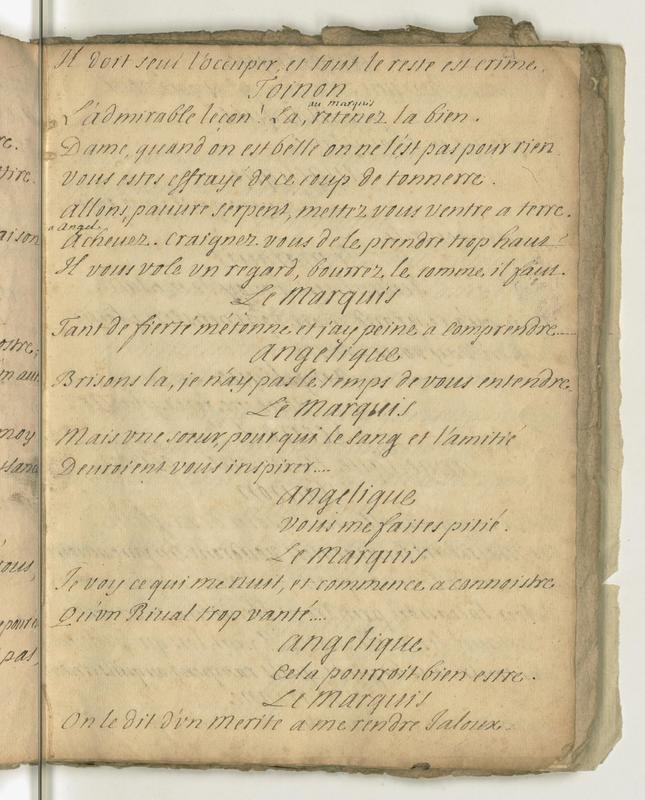 Il doit seul l'occuper, et tout le reste est crime.
Toinon
au marquis
L'admirable leçon! La, retenez la bien.
Dame, quand on est belle on ne l'est pas pour rien
vous estes effrayé de ce coup de tonnerre.
allons, pauure serpent, mettez vous ventre a terre.
a Angel.
Acheuez. Craignez vous de le prendre trop haut?
Il vous vole vn regard, bourrez le comme il faut.
Le Marquis
Tant de fierté m'étonne et j'ay peine a comprendre....
angelique
Brisons la, je n'ay pas le temps de vous entendre.
Le Marquis
Mais vne soeur, pour qui le sang et l'amitié
Deuroient vous inspirer....
angelique
vous me faites pitié.
Le Marquis
Je voy ce qui me nuit, et commence a connoistre
Qu'vn Riual trop vanté....
angelique
Cela pourroit bien estre.
Le Marquis
On le dit d'vn merite a me rendre Jaloux.